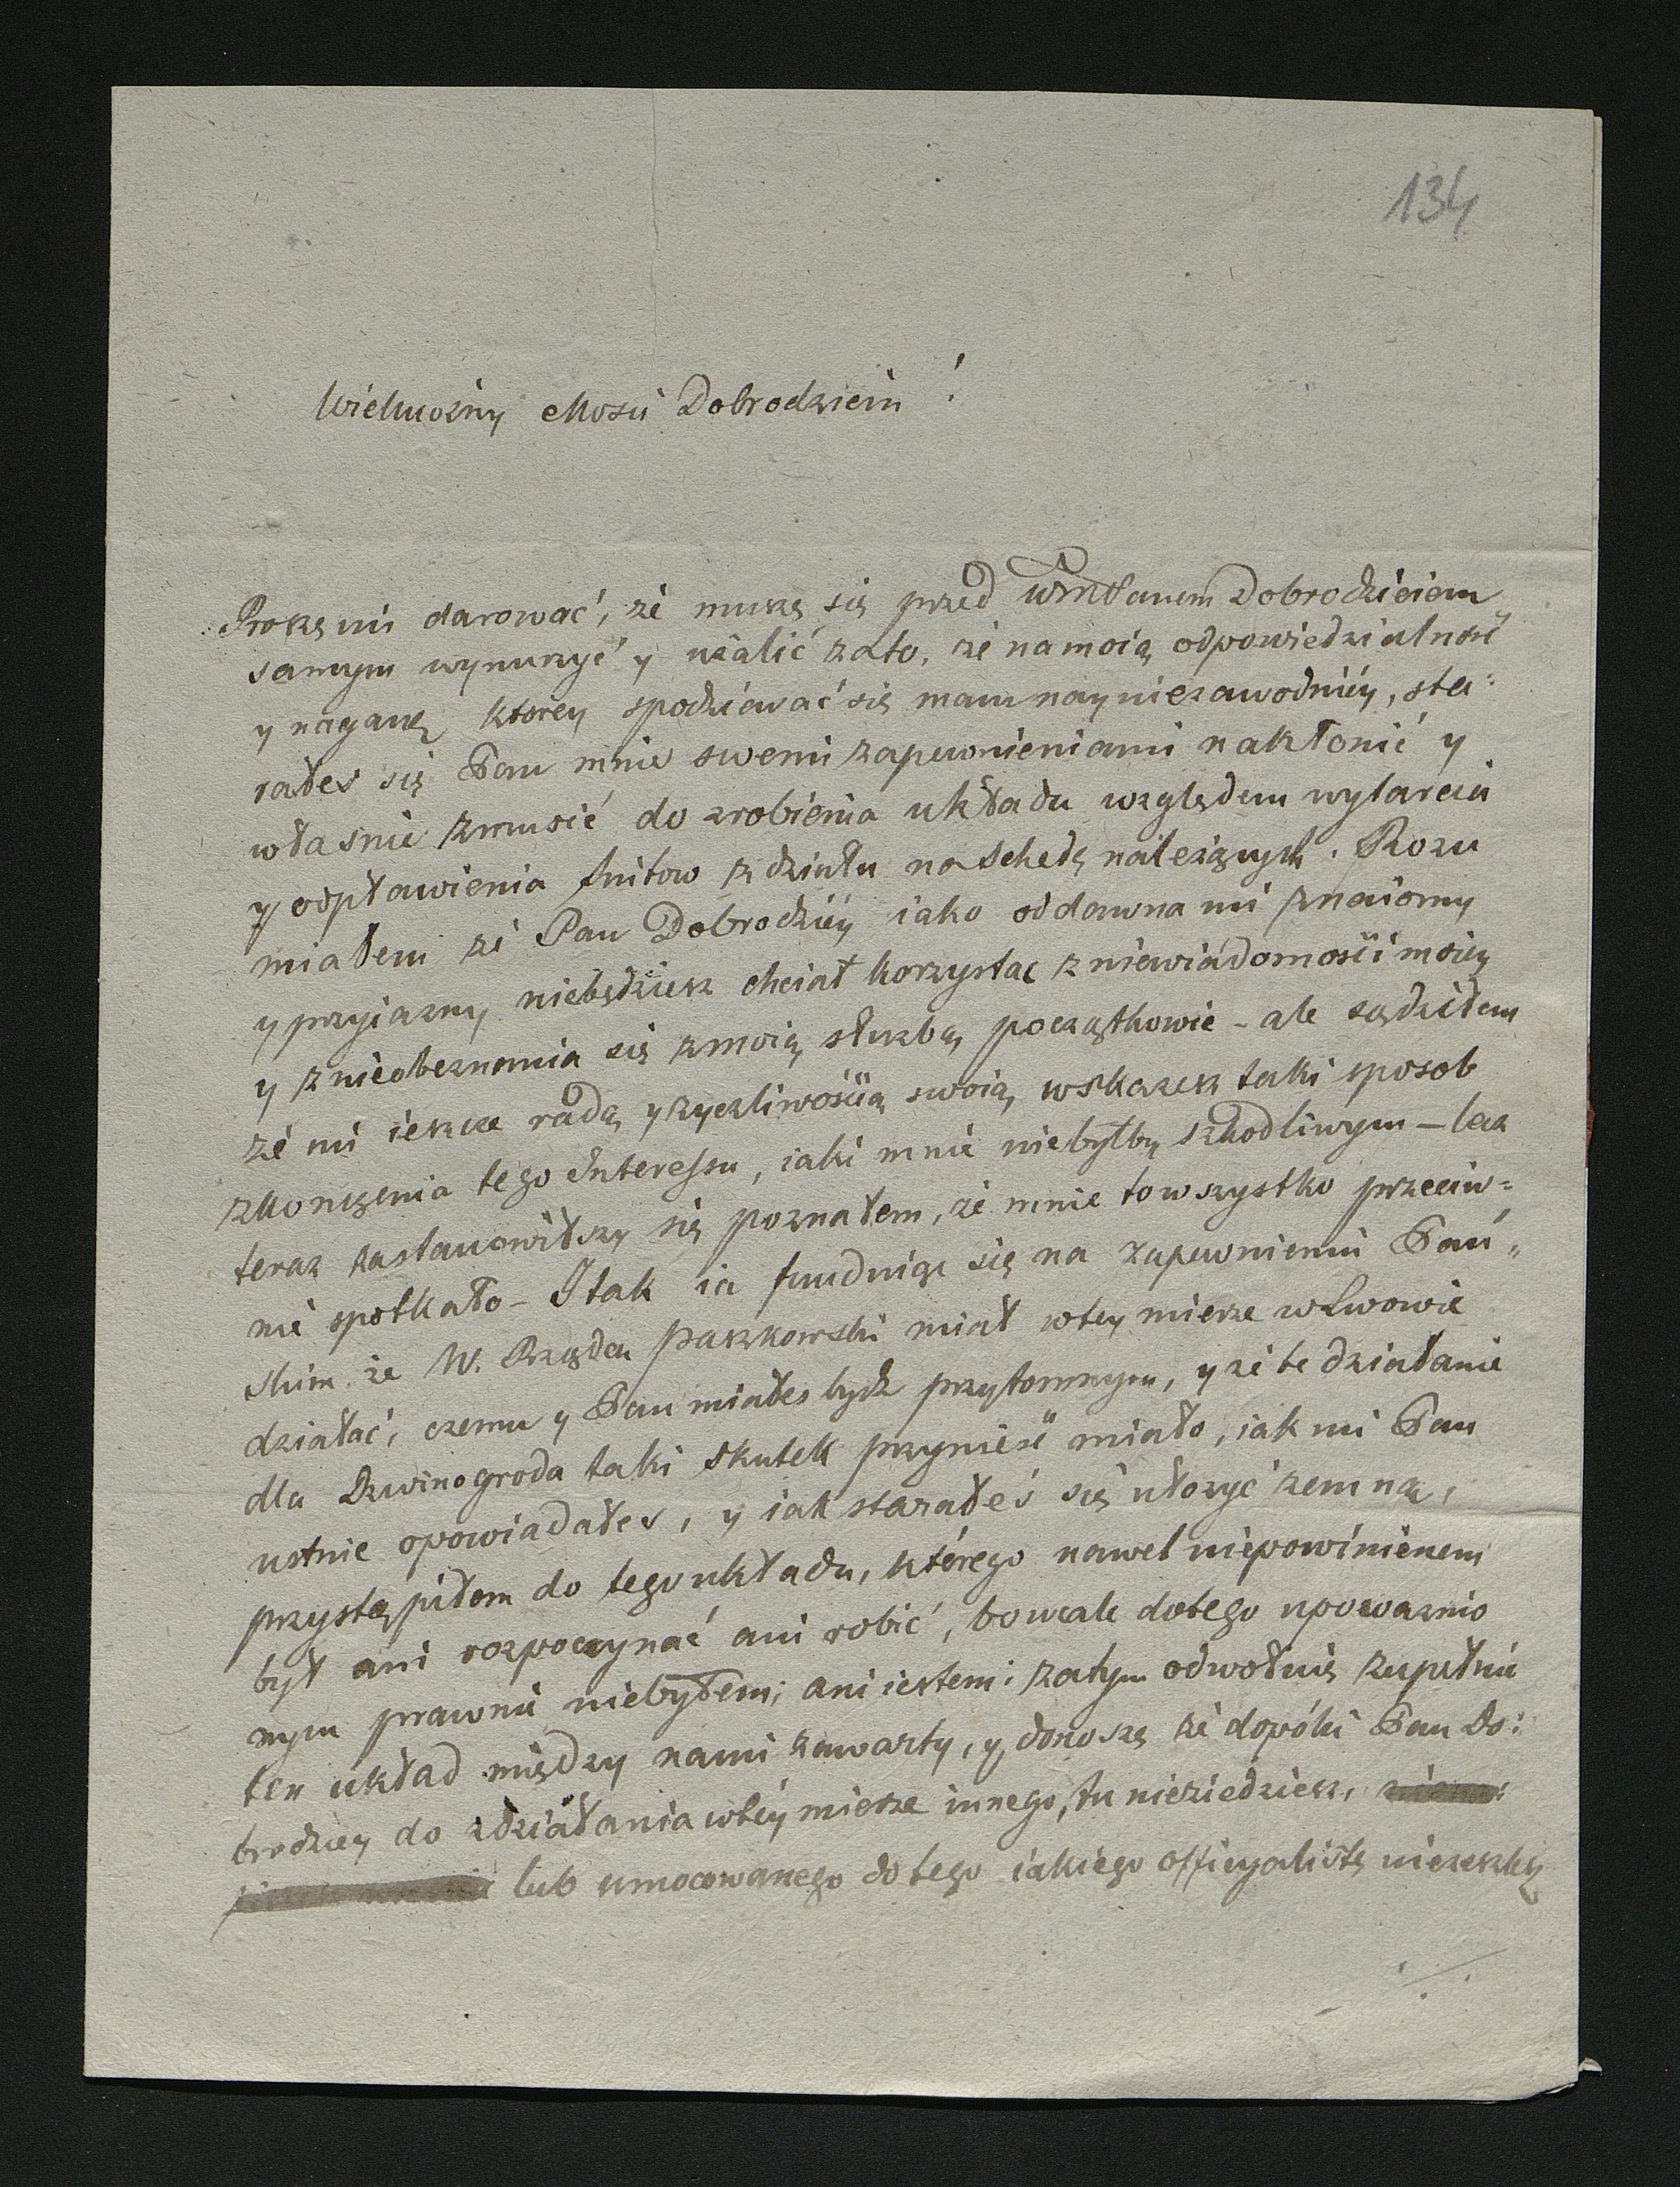 134
Wielmożny Mosci Dobrodzieiu!
Proszę mi darować, że muszę się przed WmPanem Dobrodzieiem
samym wynurzyć y użalić zato, że na moią odpowiedzialność
y naganę ktorey spodziewać się mam nayniezawodniey, sta:
rałes się Pan mnie swemi zapewnieniami nakłonić y
własnie zmusić do zrobienia układu względem wytarcia
y odpławienia z działu na Schedę należących. Rozu
miałem że Pan Dobrodziey iako oddawna mi znaiomy
y przyiazny niebędziesz chciał korzystac z niewiadomości moiey
y z nieobeznania się z moią służbą początkowie - ale sądziłem
że mi ieszcze radą y życzliwością swoią wskażesz taki sposob
zkończenia tego Interessu, iaki mnie niebyłby szkodliwym - lecz
teraz zastanowiłszy się poznałem, że mnie to wszystko przeciw=
nie spotkało - I tak ia funduiąc się na zapewnieniu Pań„
skim że W. Rządca Paszkowski miał wtey mierze w Lwowie
działać, czemu y Pan miałes bydz przytomnym, y że te działanie
dla Dzwinogroda taki skutek przynieść miało, iak mi Pan
ustnie opowiadałes, y iak starałeś się ułożyć zemną,
przystąpiłem do tego układu, którego nawet niepowinienem
był ani rozpoczynać ani robić, bo wcale dotego upoważnio
nym prawnie niebyłem, ani iestem: zatym odwołuię zupełnie
ten układ między nami zawarty, y donoszę że dopóki Pan Do:
brodziey do zdziałania wtéy mierze innego, tu nieziedziesz,
lub umocowanego do tego iakiego officyalistę niezeszlesz
./.